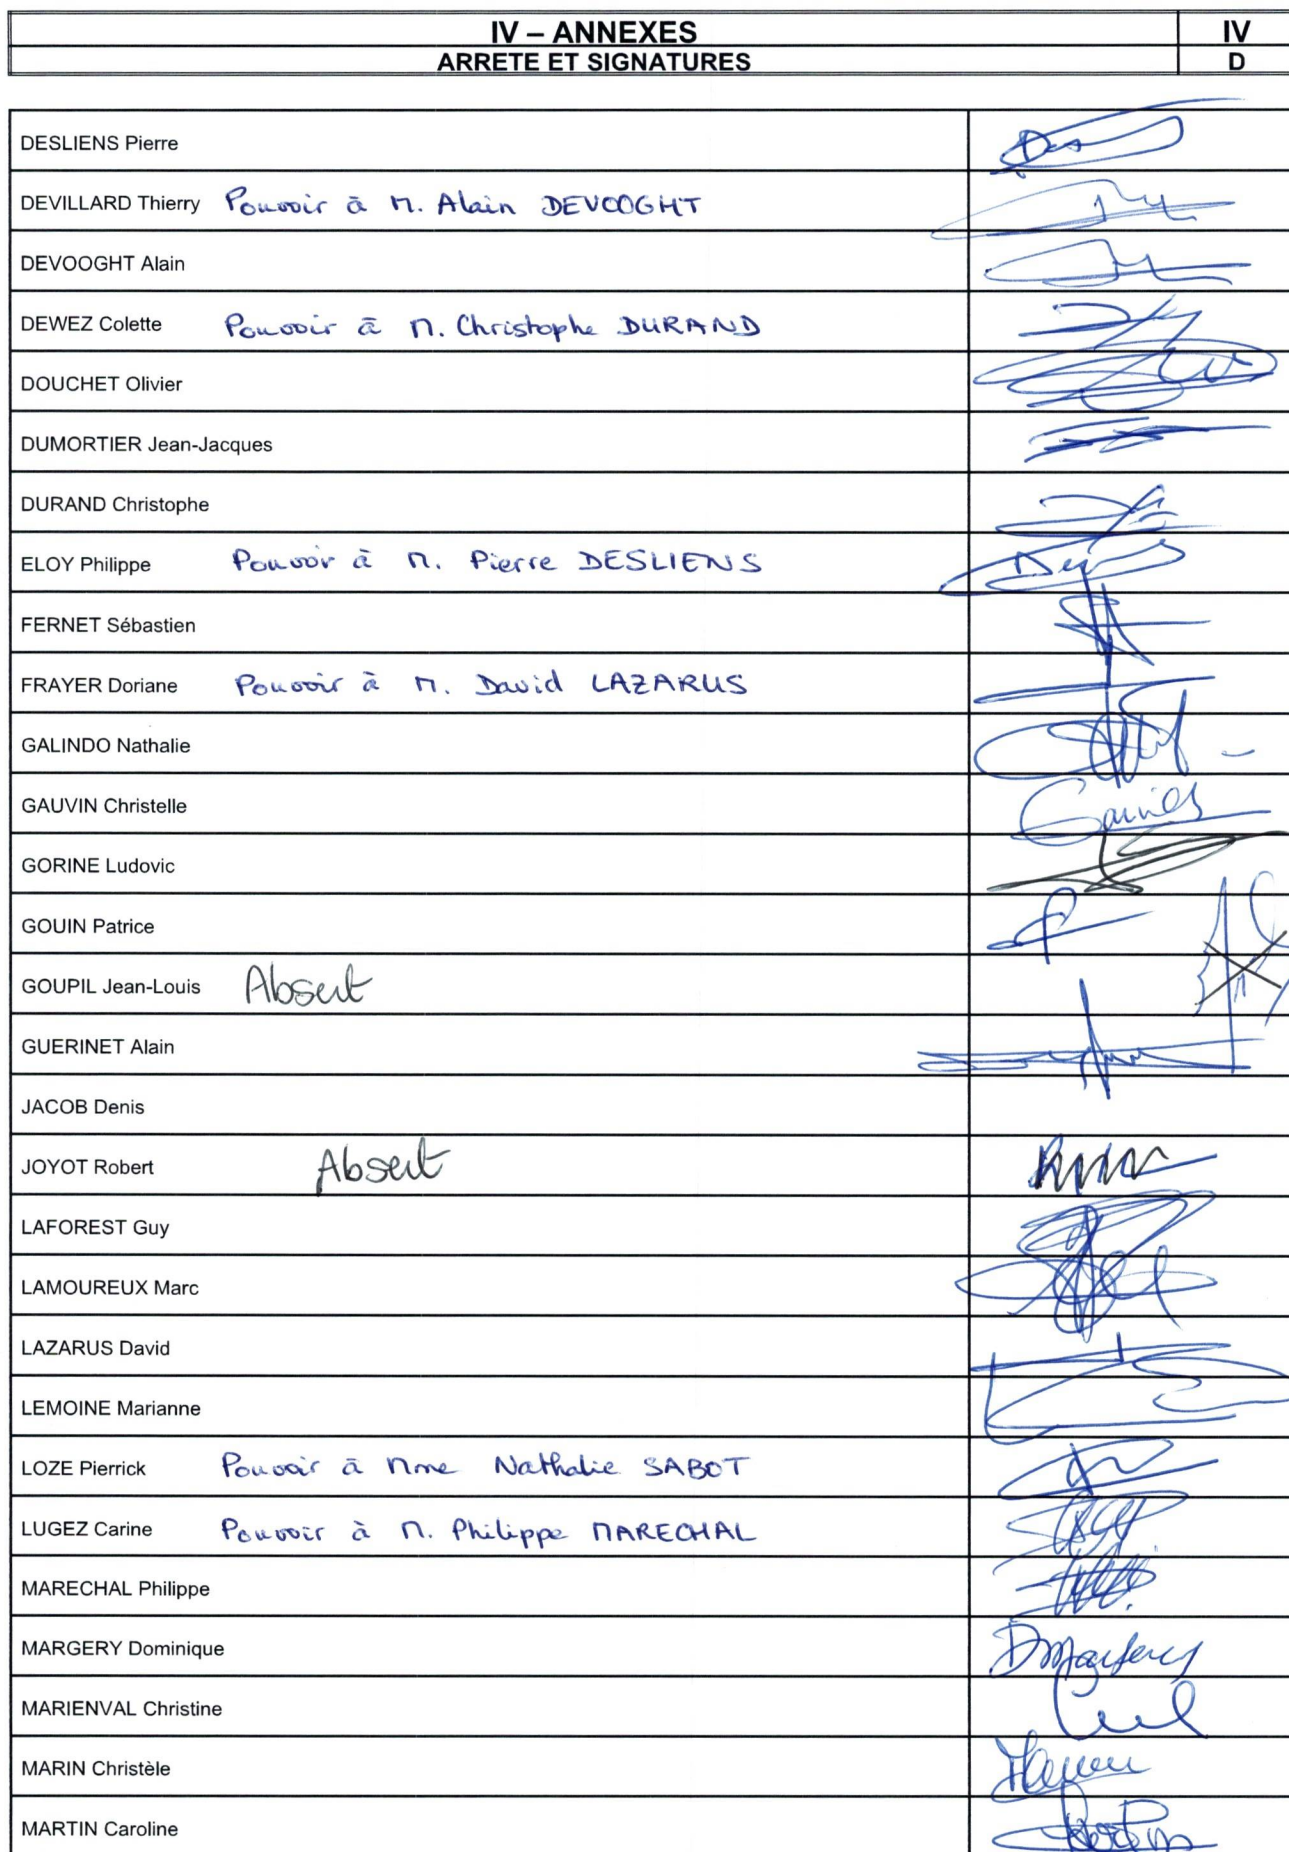 IV – ANNEXES IV
ARRETE ET SIGNATURES D
DESLIENS Pierre
DEVILLARD Thierry Pouvoir à M. Alain DEVOOGHT
DEVOOGHT Alain
DEWEZ Colette Pouvoir à M. Christophe DURAND
DOUCHET Olivier
DUMORTIER Jean-Jacques
DURAND Christophe
ELOY Philippe Pouvoir à M. Pierre DESLIENS
FERNET Sébastien
FRAYER Doriane Pouvoir à M. David LAZARUS
GALINDO Nathalie
GAUVIN Christelle
GORINE Ludovic
GOUIN Patrice
GOUPIL Jean-Louis Absent
GUERINET Alain
JACOB Denis
JOYOT Robert Absent
LAFOREST Guy
LAMOUREUX Marc
LAZARUS David
LEMOINE Marianne
LOZE Pierrick Pouvoir à Mme Nathalie SABOT
LUGEZ Carine Pouvoir à M. Philippe MARECHAL
MARECHAL Philippe
MARGERY Dominique
MARIENVAL Christine
MARIN Christèle
MARTIN Caroline